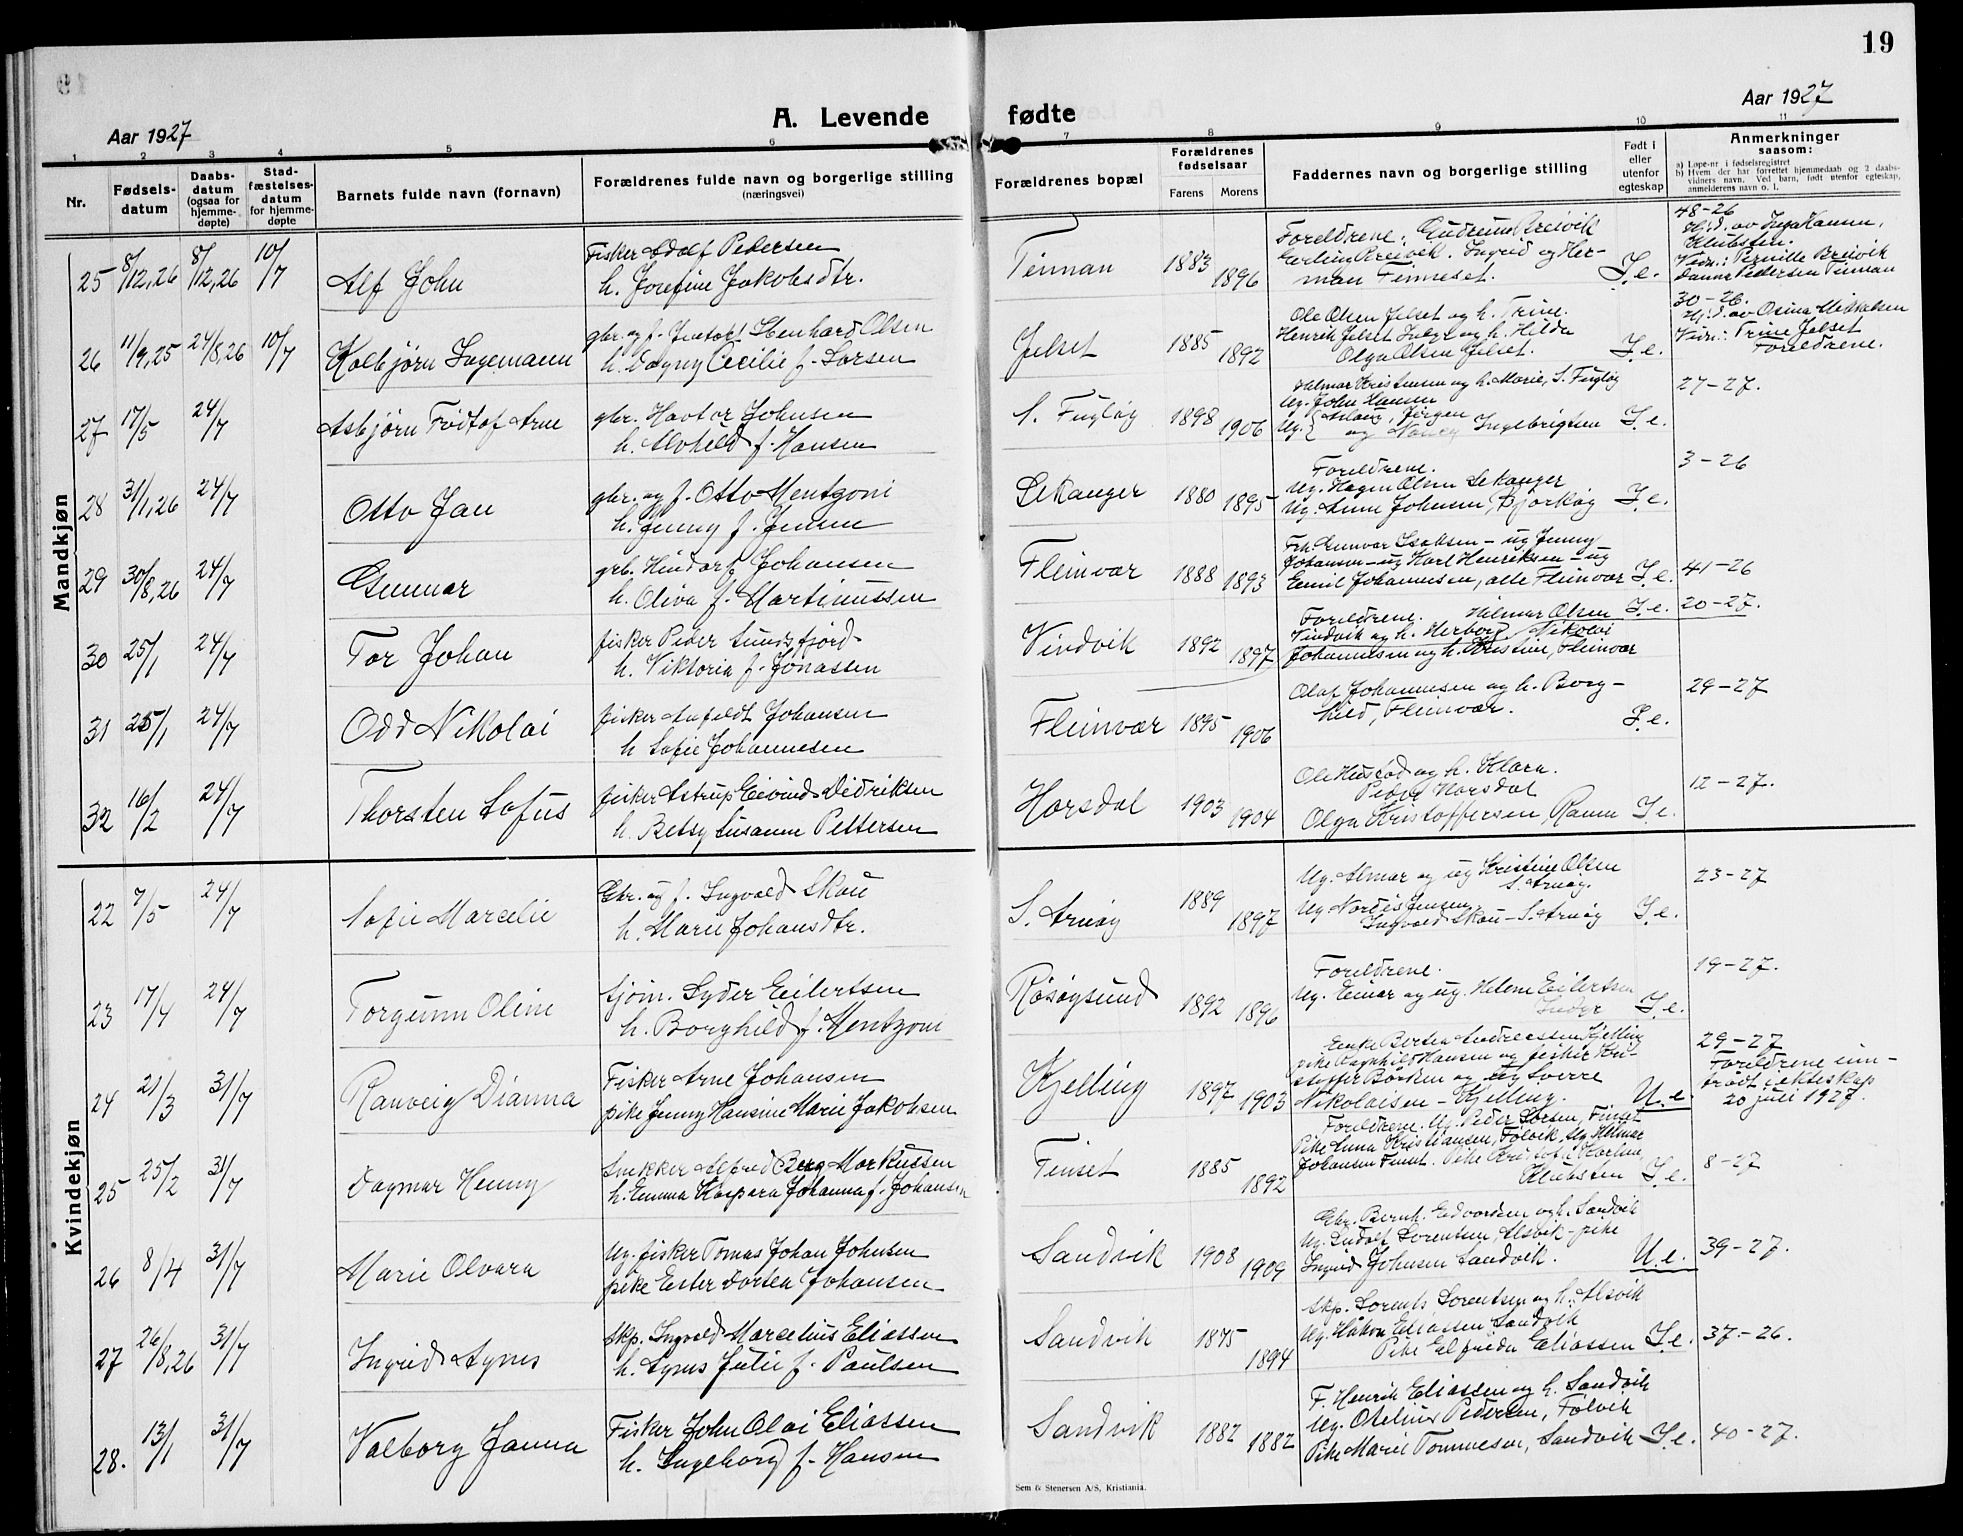 19
A. Levende fødte
Aar 1927
Aar 1927
1 2 3 4 5 6 7 8 9 10 11
Nr.
Fødsels-datum
Daabs-datum (ogsaa for hjemme-døpte)
Stad-fæstelses-datum for hjemme-døpte
Barnets fulde navn (fornavn)
Forældrenes fulde navn og borgerlige stilling
(næringsvei)
Forældrenes bopæl
Forældrenes fødselsaar
Farens Morens
Faddernes navn og borgerlige stilling
Født i eller utenfor egteskap
Anmerkninger
saasom:
a) Løpe-nr i fødselsregistret
b) Hvem der har forrettet hjemmedaab og 2 daabs-
vidners navn. Ved barn, født utenfor egteskap,
anmelderens navn o. l.
Mandkjøn
25 8/12,26 8/12,26 10/7 Alf John
Fisker Adolf Pedersen
h. Josefine Jakobsdtr.
Tinnan 1883 1896
Foreldrene. Gudrun Breivik
Breivik. Ingrid og Her-
man Finneset.
I.e.
48-26
Hj.d. av Inga Hansen,
Klubsten.
Vidn.: Pernille Breivik
Pedersen Tinnan
26 11/9,25 24/8,26 10/7 Kolbjørn Ingemann
gbr. og f. Lenhard Olsen
h. Dagny Cecilie f. Larsen
Jelset 1885 1892
Ole Olsen Jelset og h. Trine.
Henrik Jelset og h. Hilda
Olga Olsen Jelset.
I.e.
30-26.
Hj.d. av Mikkelsen
Vidn.: Trine Jelset
Foreldrene.
27 17/5 24/7 Asbjørn Fridtof Arne
gbr. Hartor Johnsen
h. Alvhild f. Hansen
S. Fugløy 1898 1906
Hilmar Kristensen og h. Marie, S. Fugløy
Ug. John Hansen
Ug. Jørgen
og Nancy Ingebrigtsen
I.e.
27-27.
28 31/1,26 24/7 Otto Jan
gbr. og f. Otto Mentzoni
h. Jenny f. Jensen
Lekanger 1880 1895
Foreldrene.
Ug. Hagen Olsen Lekanger
Ug. Anne Johnsen, Bjarkøy
I.e.
3-26
29 30/8,26 24/7 Gunnar
grb. Hindorf Johansen
h. Oliva f. Martinussen
Fleinvær 1888 1893
Gunvor Isaksen - ug Jenny
Johansen - ug Karl Henriksen - ug
Emil Johannesen, alle Fleinvær
I.e.
41-26
30 25/1 24/7 Tor Johan
fisker Peder Sundsfjord
h. Viktoria f. Jonassen
Vindvik 1892 1897
Foreldrene. Hilmar Olsen
Vindvik og h. Herborg, Nikolai
Johannesen og h. Kristine, Fleinvær
I.e.
20-27.
31 25/1 24/7 Odd Nikolai
fisker Anfeldt Johansen
h Sofie Johannesen
Fleinvær 1895 1906
Olaf Johannesen og h. Borg-
hild, Fleinvær.
I.e.
29-27
32 16/2 24/7 Thorsten Sofus
fisker Astrup Eivind Didriksen
h. Betsy Susanne Pettersen
Horsdal 1903 1904
Ole Hustad og h. Klara.
Peder Horsdal
Olga Kristoffersen, Ramn
I.e.
12-27.
Kvindekjøn
22 7/5 24/7 Sofie Marcelie
Gbr. og f. Ingvald Skau
h. Marie Johansdtr.
S. Arnøy 1889 1897
Ug. Almar og ug Kristine Olsen
S. Arnøy.
Ug Nordis Jensen,
Ingvald Skau - S. Arnøy
I.e.
23-27
23 17/4 24/7 Torgunn Oline
Sjøm. Lyder Eilertsen
h. Borghild f. Mentzoni
Røsøysund 1892 1896
Foreldrene.
Ug. Einar og ug. Helene Eilertsen
Inder
I.e.
19-27.
24 21/3 31/7 Ranveig Dianna
Fisker Arne Johansen
pike Jenny Hansine Marie Jakobsen
Kjelling 1897 1903
Enke Berten Andreassen Kjelling
pike Ragnhild Hansen og fisker Kri-
stoffer Bården og ug Sverre
Nikolaisen - Kjelling.
U.e.
29-27
Foreldrene inn-
trådt i ekteskap
20 juli 1927.
25 25/2 31/7 Dagmar Henny
Snekker Alfred Berg Markussen
h. Emma Kaspara Johanna f. Johansen
Finset 1885 1892
Foreldrene. Ug. Peder Larsen, Finset
Pike Anna Kristiansen, Følvik, Ug. Hilmar
Johansen Finset. Pike Karline
Klubsten
I.e.
8-27
26 8/4 31/7 Marie Olvara
Ug. fisker Tomas Johan Johnsen
pike Ester Dortea Johansen
Sandvik 1908 1909
Gbr. Bernh. Edvardsen og h. Sandvik
Ug. Ludolf Lorentsen, Alsvik - pike
Ingrid Johnsen Sandvik.
U.e.
39-27.
27 26/8,26 31/7 Ingrid Agnes
Skp. Ingvald Marcelius Eliassen
h. Agnes Julie f. Paulsen
Sandvik 1875 1894
Skp. Lorents Lorentsen og h. Alsvik
Ug. Håkon Eliassen Sandvik
Pike Elfrida Eliassen
I.e.
37-26.
28. 13/1 31/7 Valborg Janna
Fisker John Olai Eliassen
h. Ingeborg f. Hansen
Sandvik 1882 1882
F. Henrik Eliassen og h. Sandvik
Ug. Otelius Pedersen, Følvik
Pike Marie Tommesen, Sandvik
I.e.
40-27.
Sem & Stenersen A/S, Kristiania.